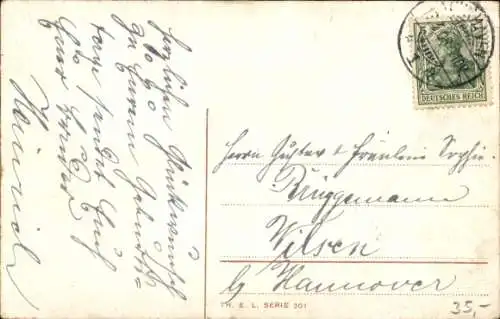 Herzlichen Glückwunsch
zu Eurem Geburts=
tage sendet Euch
Euer Bruder
Heinrich
DEUTSCHES REICH
Herrn Gustav & Fräulein Sophie
Brüggemann
Vilsen
b/ Hannover
TH. E. L. SERIE 201
35,-